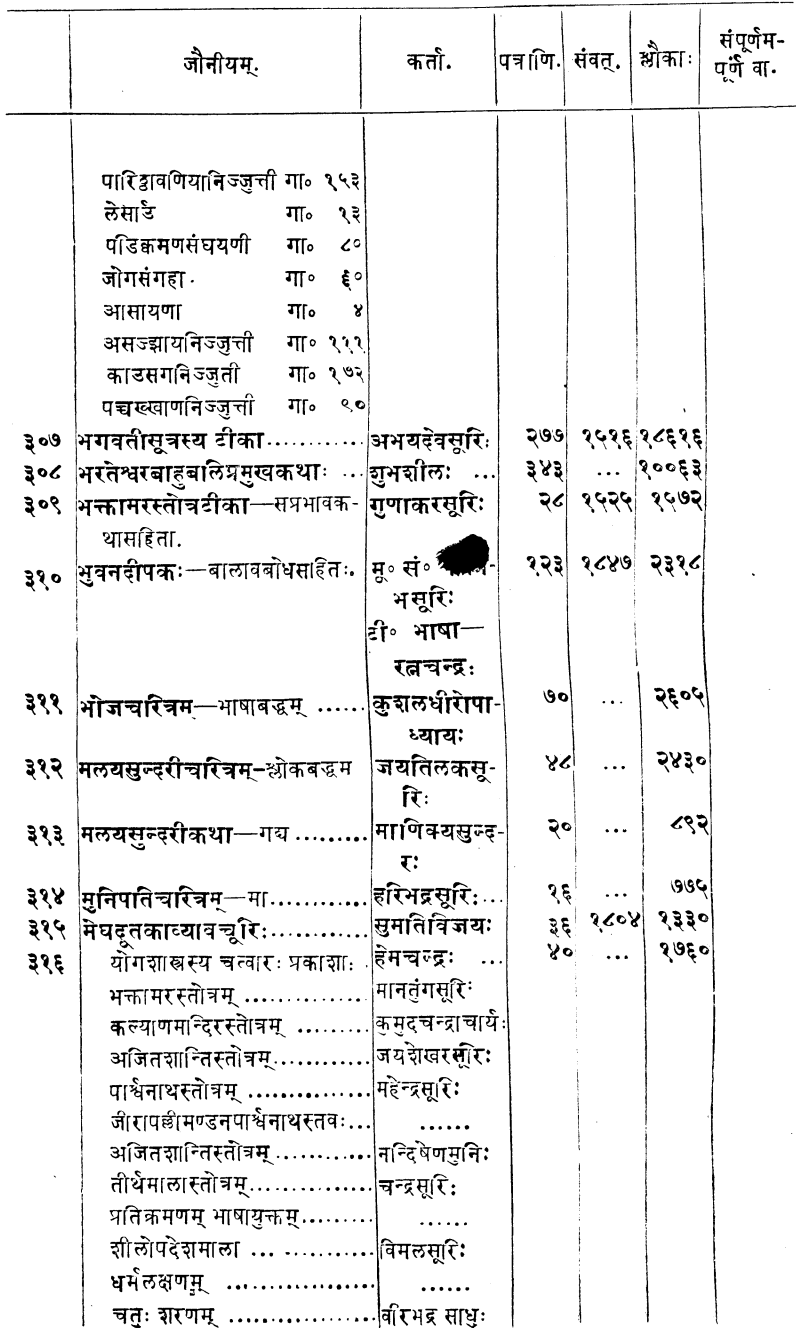 जौनीयम्. कर्ता. पत्राणि. संवत्. श्लौकाः संपूर्णम-
पूर्णं वा.
पारिट्ठावणियानिज्जुत्ती गा० १५३
लेसाउ गा० १३
पडिक्कमणसंघयणी गा० ८०
जोगसंगहा. गा० ६०
आसायणा गा० ४
असज्झायनिज्जुत्ती गा० १११
काउसगनिज्जुती गा० १७२
पच्चख्खाणनिज्जुत्ती गा० ९०
३०७ भगवतीसूत्रस्य टीका............ अभयदेवसूरिः २७७ १५१६ १८६१६
३०८ भरतेश्वरबाहुबालिप्रमुखकथाः ... शुभशीलः ... ३४३ ... १००६३
३०९ भक्तामरस्तोत्रटीका—सप्रभावक- गुणाकरसूरिः २८ १५२५ १५७२
थासहिता.
३१० भुवनदीपकः—बालावबोधसहितः. मू० सं० १२३ १८४७ २३१८
भसूरिः
टी० भाषा—
रत्नचन्द्रः
३११ भोजचरित्रम—भाषाबद्धम् ...... कुशलधीरोपा- ७० ... २६०५
ध्यायः
३१२ मलयसुन्दरीचरित्रम्-श्लोकबद्धम जयतिलकसू- ४८ ... २४३०
रिः
३१३ मलयसुन्दरीकथा—गद्य ......... माणिक्यसुन्द- २० ... ८९२
रः
३१४ मुनिपतिचरित्रम्—मा............ हरिभद्रसूरिः... १६ ... ७७५
३१५ मेघदूतकाव्यावचूरिः............ सुमतिविजयः ३६ १८०४ १३३०
३१६ योगशास्त्रस्य चत्वारः प्रकाशाः हेमचन्द्रः ... ४० ... १७६०
भक्तामरस्तोत्रम् ............... मानतुंगसूरिः
कल्याणमन्दिरस्तोत्रम् ......... कुमुदचन्द्राचार्यः
अजितशान्तिस्तोत्रम्............ जयशेखरसूरिः
पार्श्वनाथस्तोत्रम् ............... महेन्द्रसूरिः
जीरापल्लीमण्डनपार्श्वनाथस्तवः... ......
अजितशान्तिस्तोत्रम् ............ नन्दिषेणमुनिः
तीर्थमालास्तोत्रम्............... चन्द्रसूरिः
प्रतिक्रमणम् भाषायुक्तम्......... ......
शीलोपदेशमाला ... ............ विमलसूरिः
धर्मलक्षणम् .................. ......
चतुः शरणम् .................. वीरभद्र साधुः